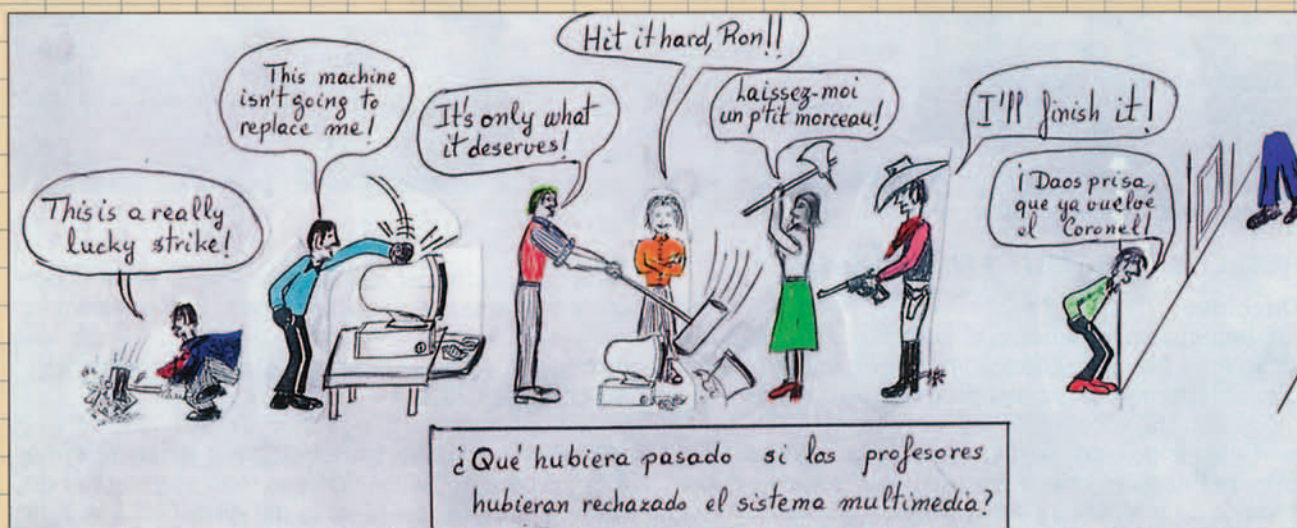 This is a really
lucky strike!
This machine
isn't going to
replace me!
It's only what
it deserves!
Hit it hard, Ron!!
Laissez-moi
un p'tit morceau!
I'll finish it!
¡Daos prisa,
que ya vuelve
el Coronel!
¿Qué hubiera pasado si los profesores
hubieran rechazado el sistema multimedia?